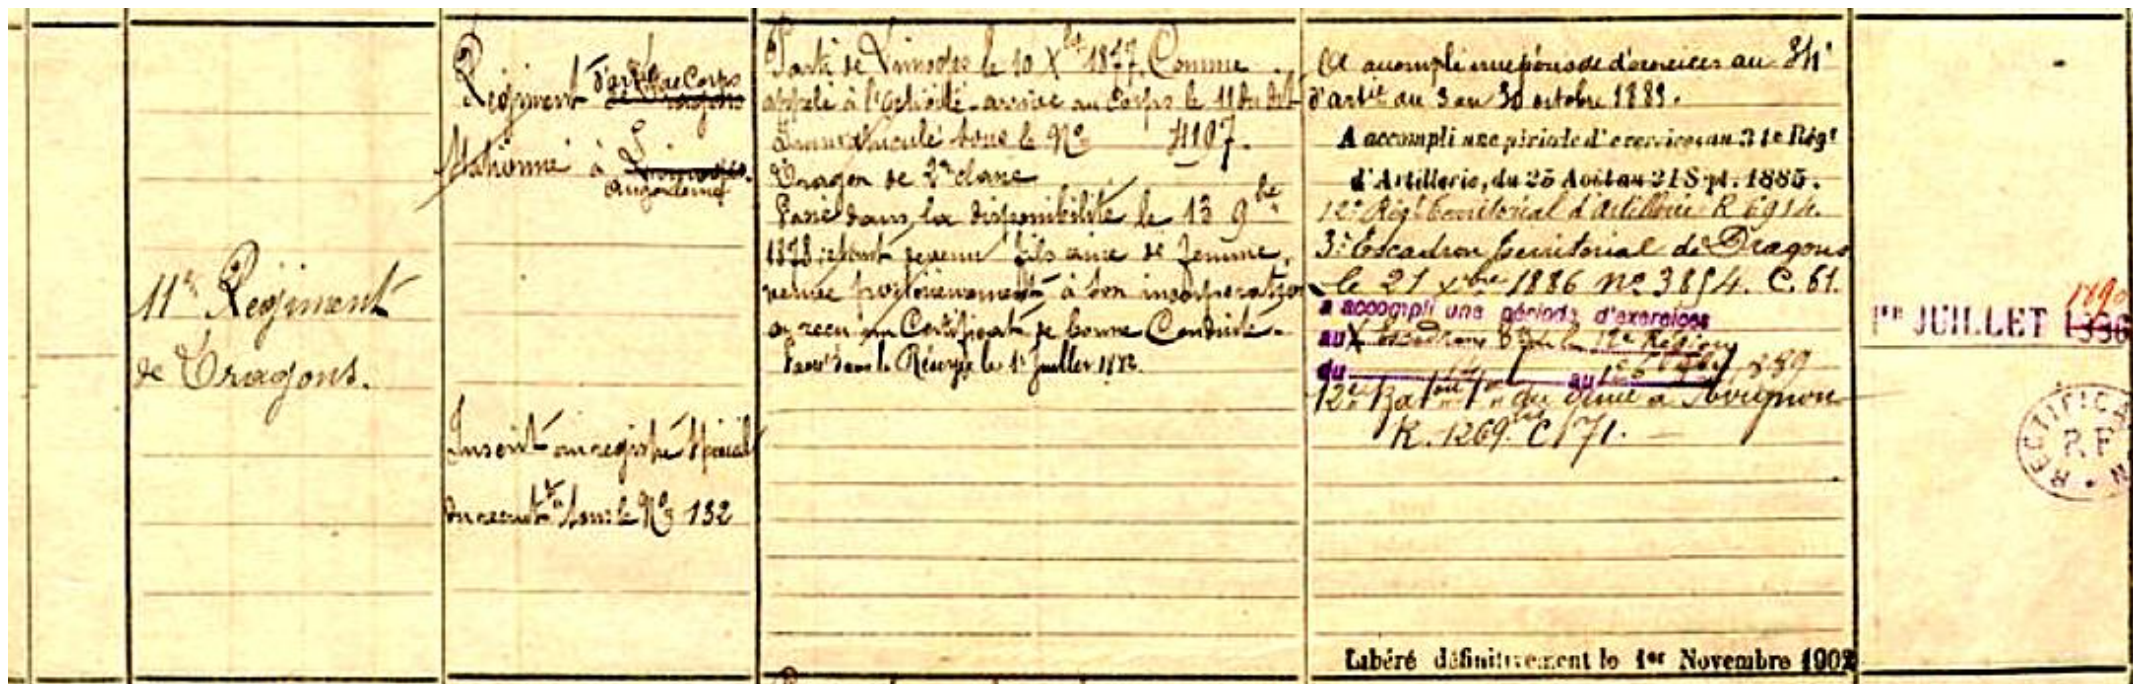 11e Régiment
de Dragons.
Régiment d'artie de Corps
de Dragons
Stationné à Limoges.
Angoulême
Inscrit au registre spécial
du recrutt sous le No 132
Parti de Limoges le 10 Xbre 1877. Comme
appelé à l'activité - arrivé au Corps le 11 du dit
Immatriculé sous le No 4107.
Dragon de 2e classe
Passé dans la disponibilité le 13 9bre
1878 étant devenu fils ainé de femme
veuve postérieurement à son incorporation
a reçu un Certificat de bonne Conduite.
Passé dans la Réserve le 1er Juillet 1882.
A accompli une période d'exercices au 34e
d'artie du 3 au 30 octobre 1883.
A accompli une période d'exercices au 34e Régt
d'Artillerie, du 25 Août au 21 Sept. 1885.
12e Régt territorial d'artillerie R 6914.
3e Escadron territorial de Dragons
le 21 xbre 1886 no 3854. C. 61.
a accompli une période d'exercices
au Escadron de la 12e Région
du au
12e du Génie a Avignon
R. 1269. C 171.
Libéré définitivement le 1er Novembre 1902
1er JUILLET 1896
RECTIFICATION
R F